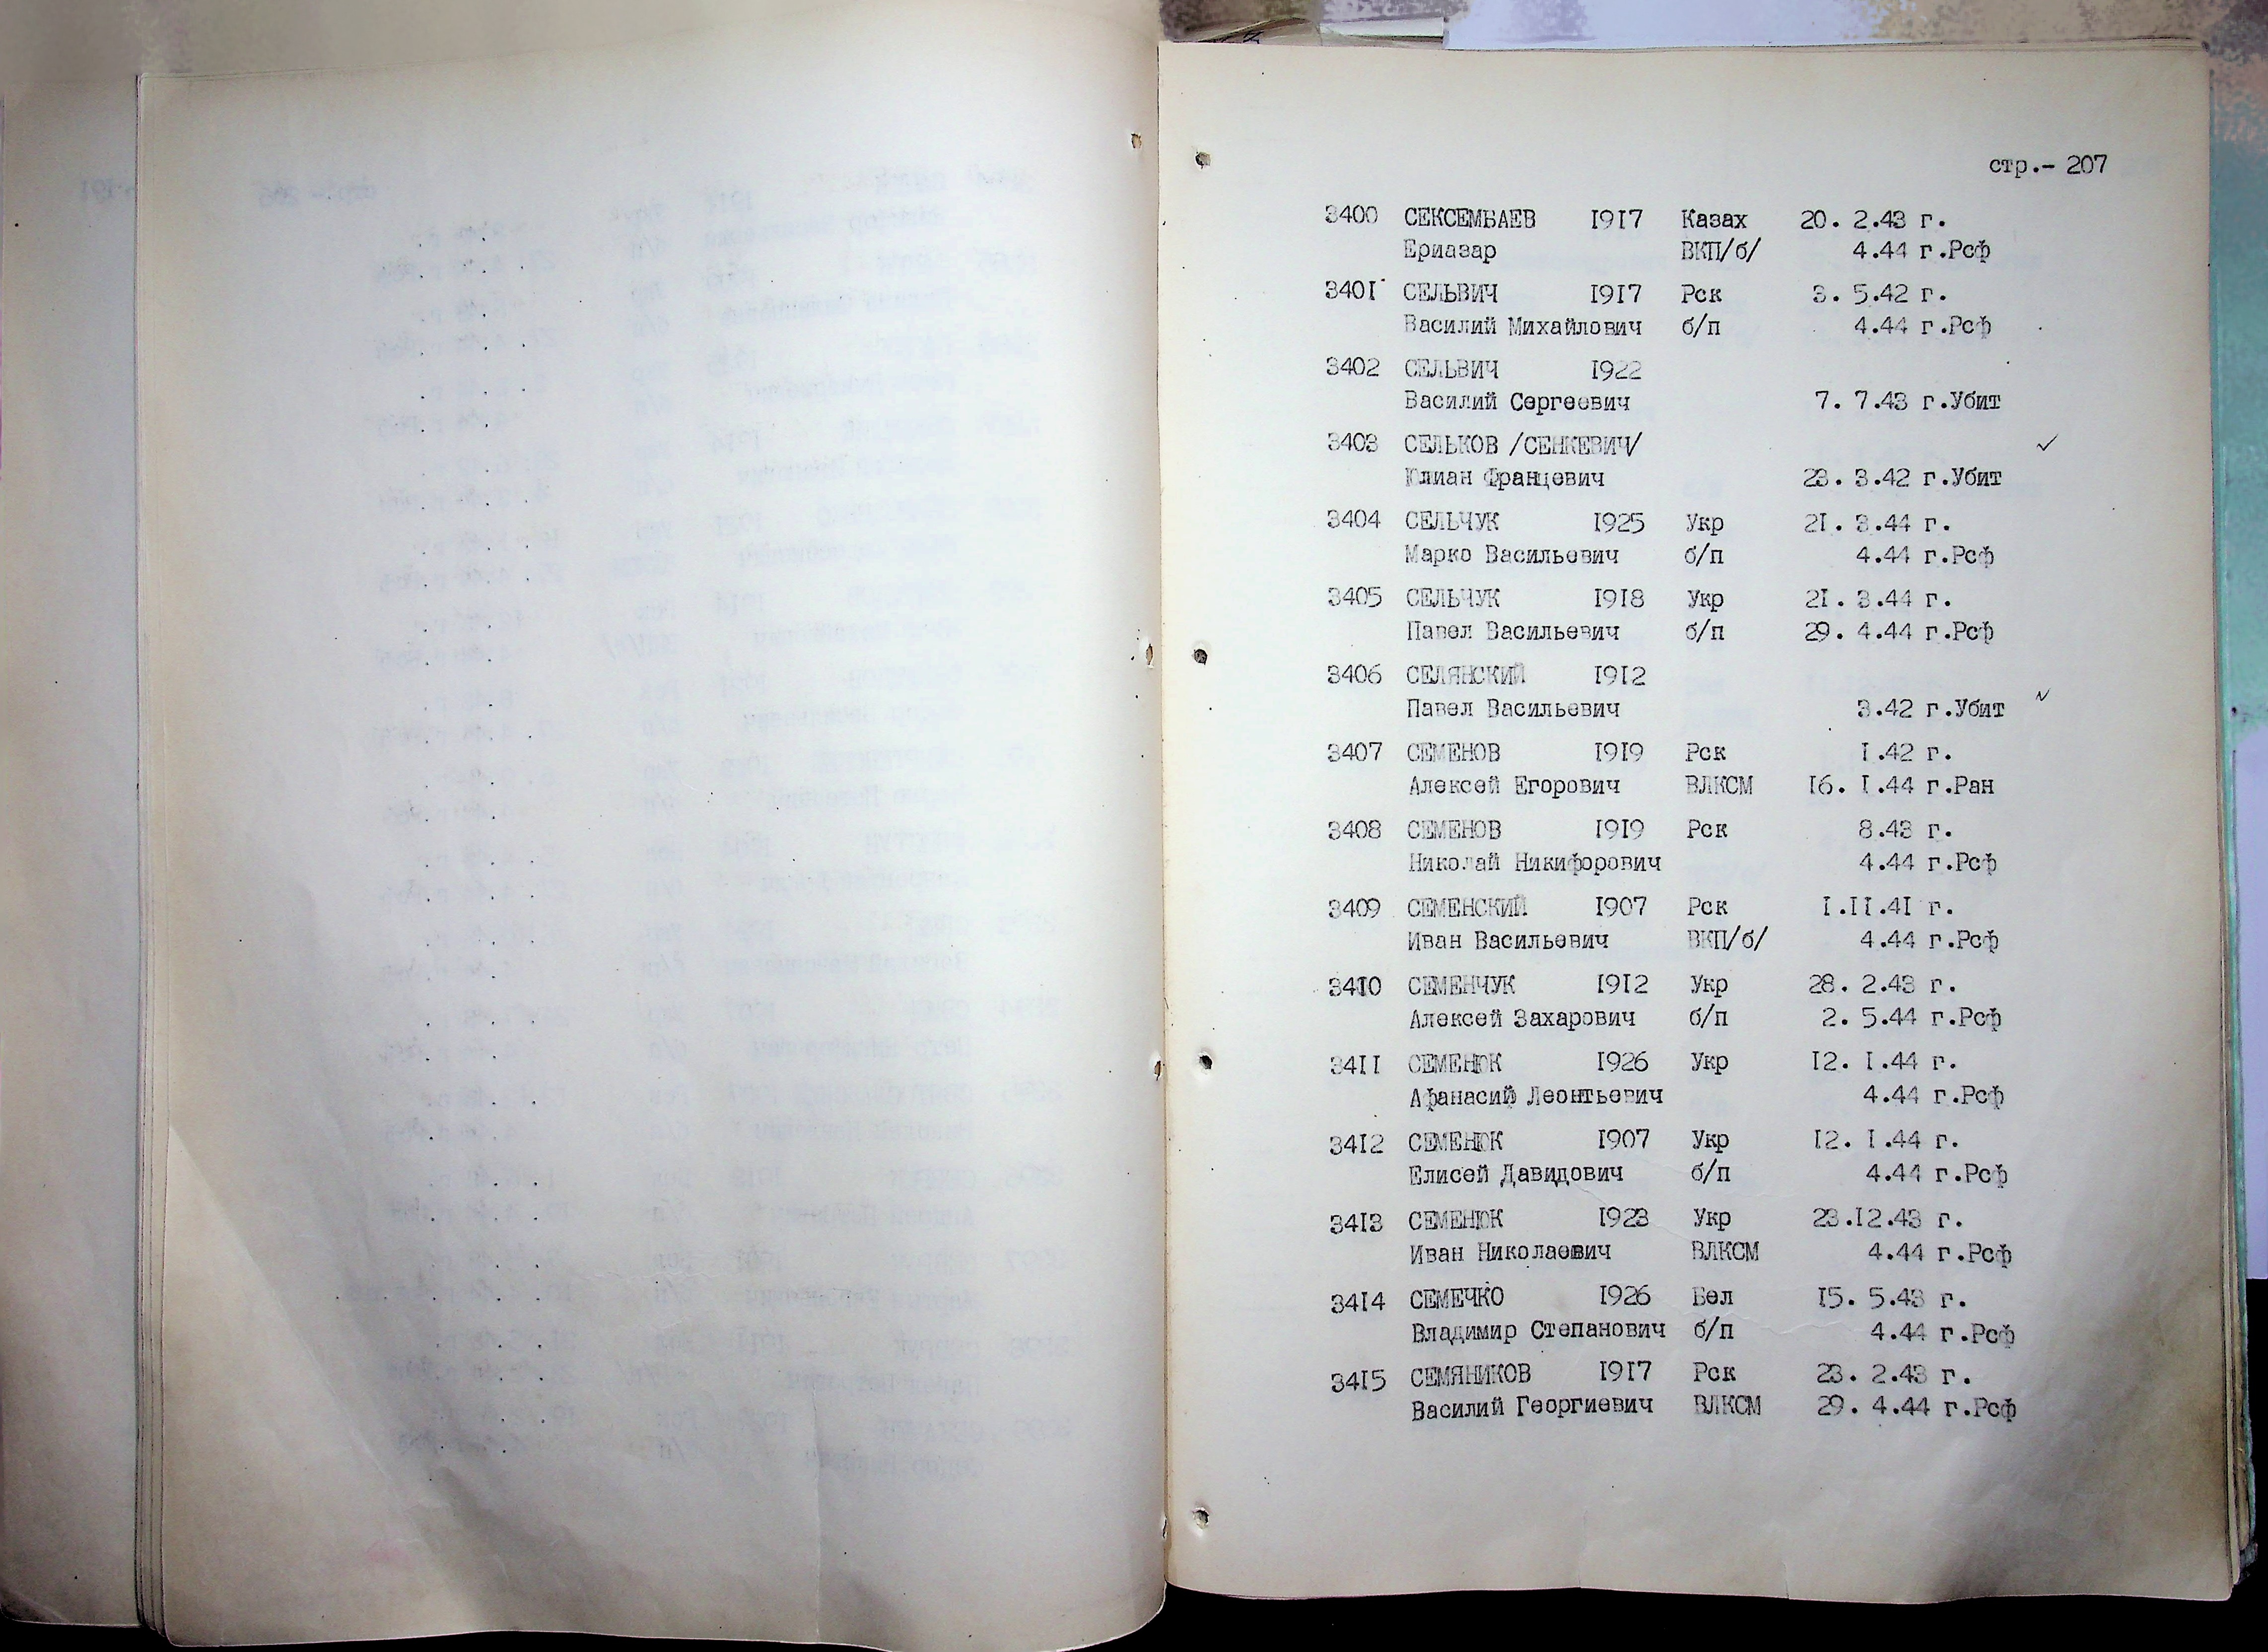 стр.- 207
3400 СЕКСЕМБАЕВ 1917 Казах 20. 2.43 г.
Ериазар ВКП/б/ 4.44 г.Рсф
3401 СЕЛЬВИЧ 1917 Рск 3. 5.42 г.
Василий Михайлович б/п 4.44 г.Рсф
3402 СЕЛЬВИЧ 1922
Василий Сергеевич 7. 7.43 г.Убит
3403 СЕЛЬКОВ /СЕНКЕВИЧ/
Юлиан Францевич 23. 3.42 г.Убит
3404 СЕЛЬЧУК 1925 Укр 21. 3.44 г.
Марко Васильевич б/п 4.44 г.Рсф
3405 СЕЛЬЧУК 1918 Укр 21. 3.44 г.
Павел Васильевич б/п 29. 4.44 г.Рсф
3406 СЕЛЯНСКИЙ 1912
Павел Васильевич 3.42 г.Убит
3407 СЕМЕНОВ 1919 Рск 1.42 г.
Алексей Егорович ВЛКСМ 16. 1.44 г.Ран
3408 СЕМЕНОВ 1919 Рск 8.43 г.
Николай Никифорович 4.44 г.Рсф
3409 СЕМЕНСКИЙ 1907 Рск 1.11.41 г.
Иван Васильевич ВКП/б/ 4.44 г.Рсф
3410 СЕМЕНЧУК 1912 Укр 28. 2.43 г.
Алексей Захарович б/п 2. 5.44 г.Рсф
3411 СЕМЕНЮК 1926 Укр 12. 1.44 г.
Афанасий Леонтьевич 4.44 г.Рсф
3412 СЕМЕНЮК 1907 Укр 12. 1.44 г.
Елисей Давидович б/п 4.44 г.Рсф
3413 СЕМЕНЮК 1923 Укр 23.12.43 г.
Иван Николаевич ВЛКСМ 4.44 г.Рсф
3414 СЕМЕЧКО 1926 Бел 15. 5.43 г.
Владимир Степанович б/п 4.44 г.Рсф
3415 СЕМЯНИКОВ 1917 Рск 23. 2.43 г.
Василий Георгиевич ВЛКСМ 29. 4.44 г.Рсф